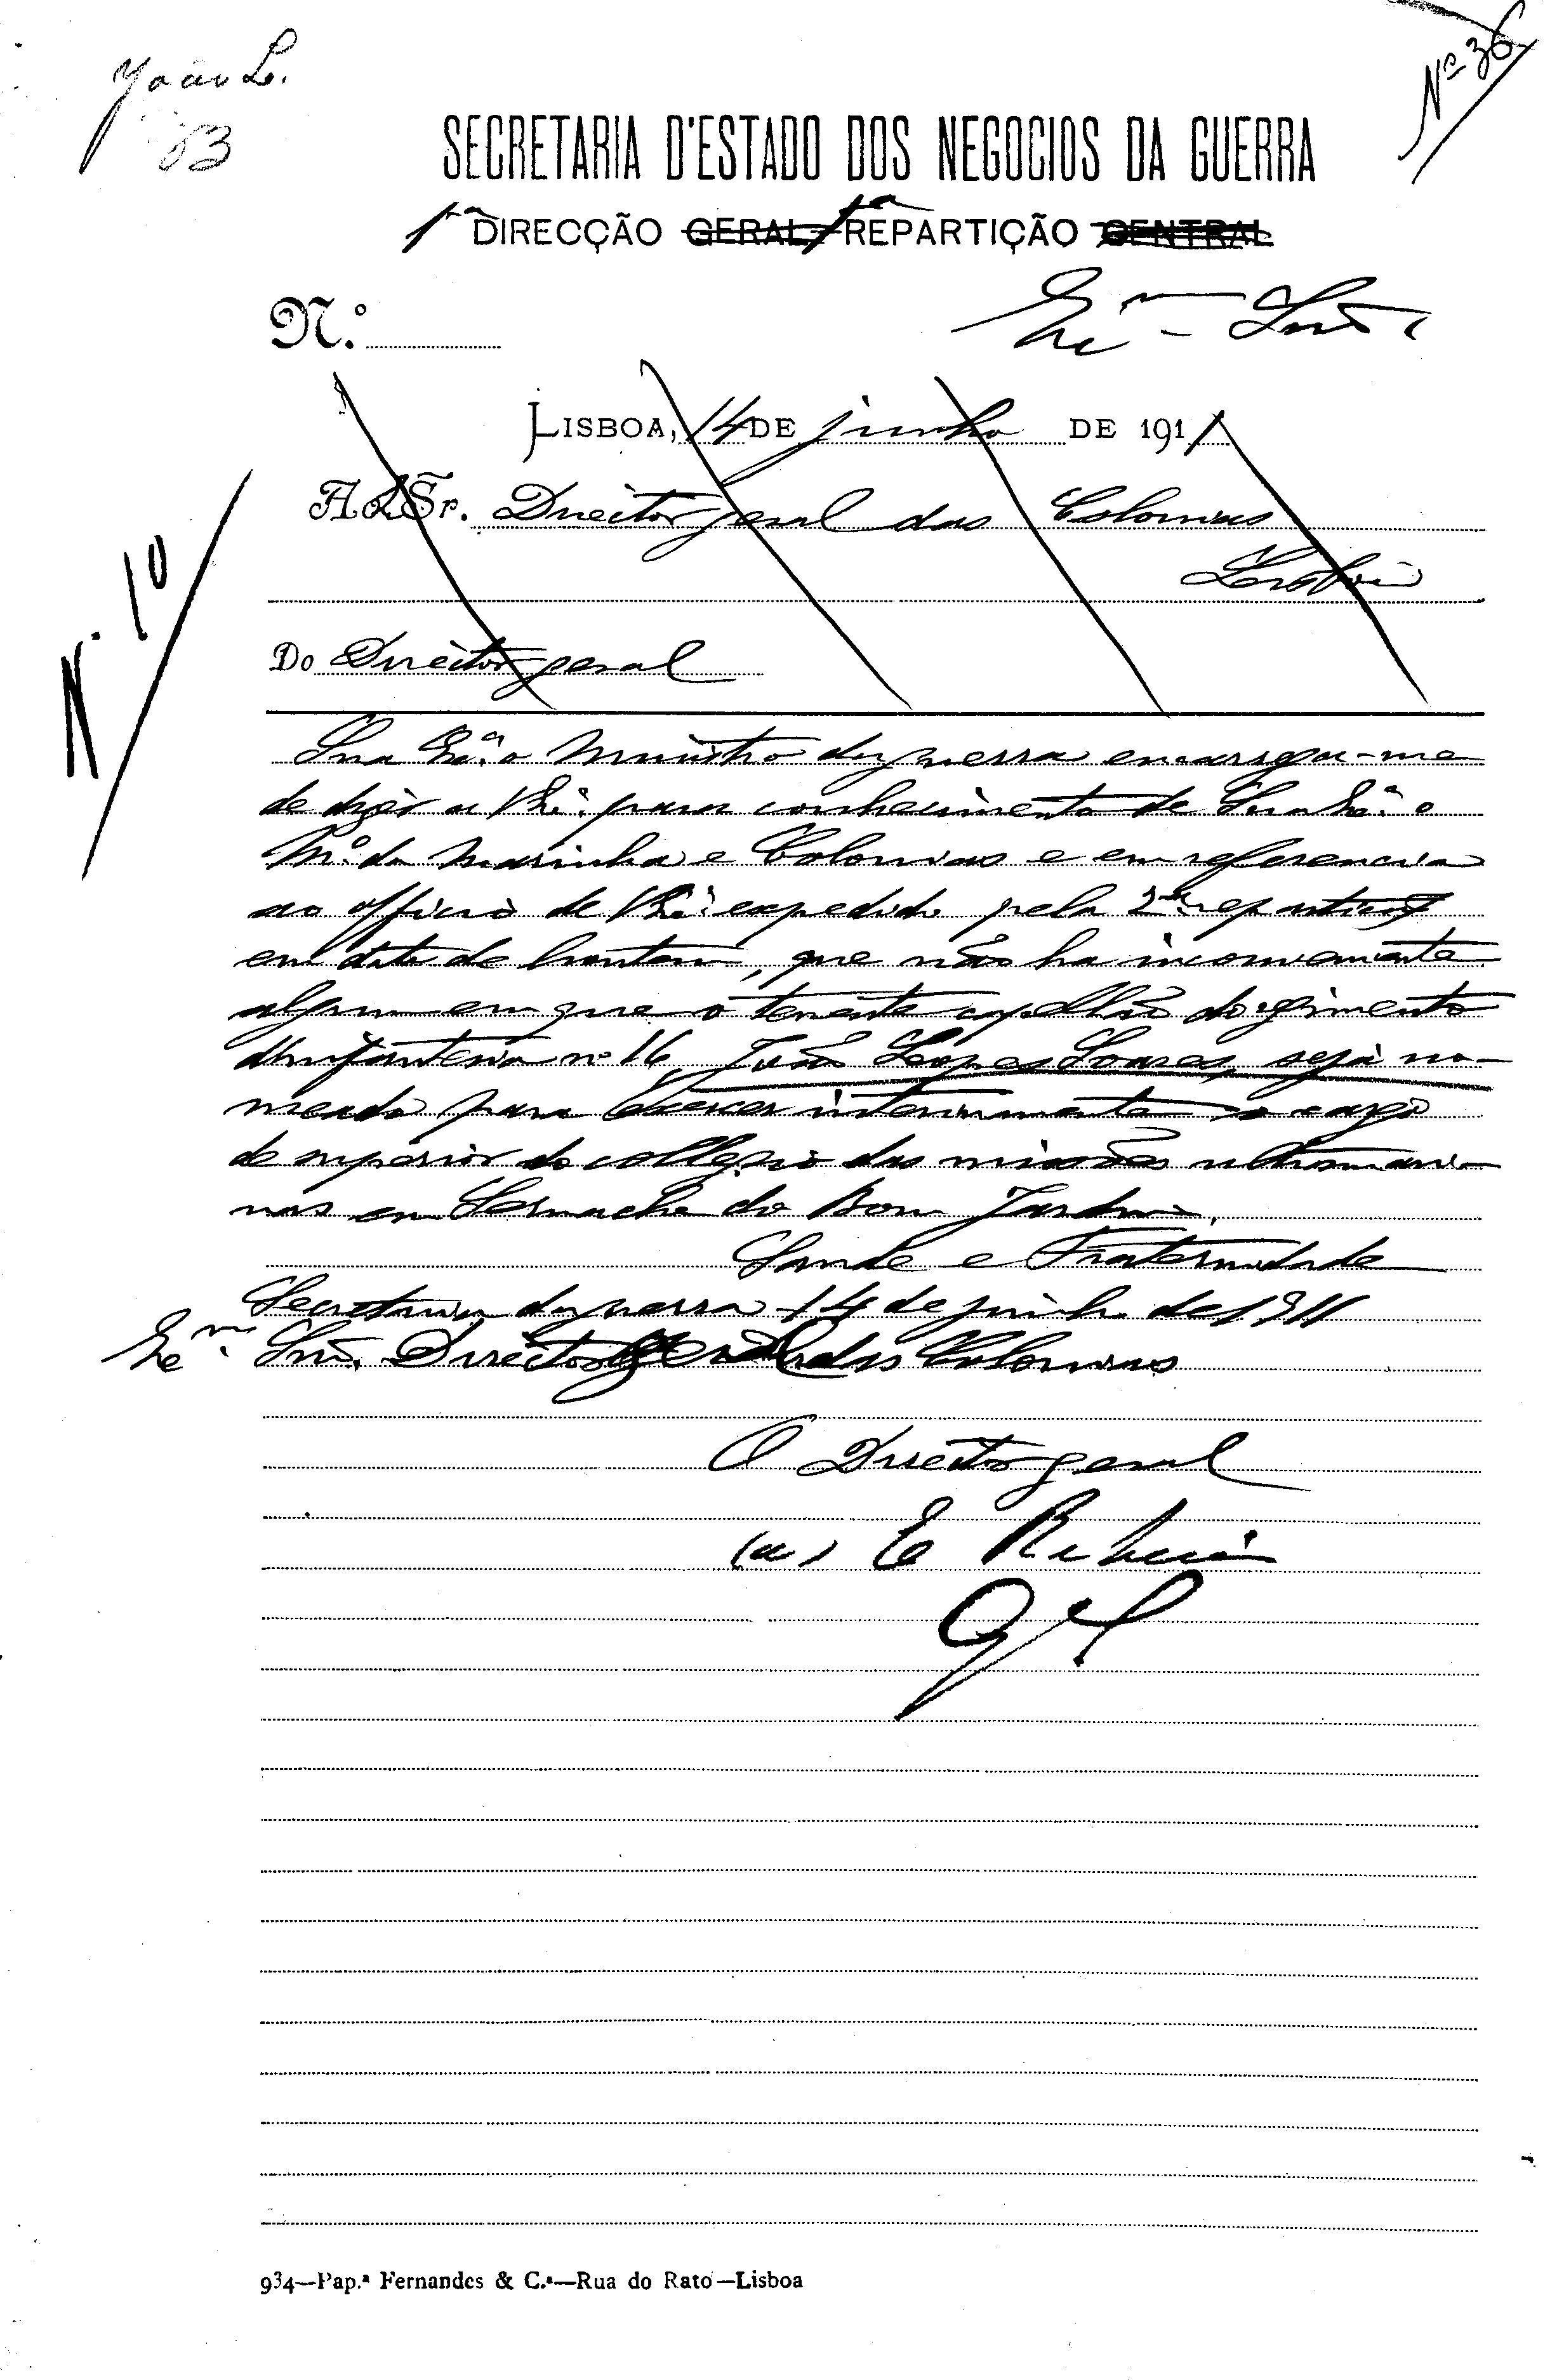 João L.
Nº 36
53
SECRETARIA D'ESTADO DOS NEGOCIOS DA GUERRA
1ª DIRECÇÃO GERAL 1ª REPARTIÇÃO CENTRAL
N.º
Exmo Snr
LISBOA, 14 DE junho DE 1911
Ao Sr. Director geral das Colonias
Lisboa
Do Director geral
N. 10
Sua Exª o Ministro da guerra encarrega-me
de dizer a V. Exª para conhecimento de Sua Exª o
Mº da Marinha e Colonias e em referencia
ao officio de V. Exª expedido pela 2ª repartição
em data de hontem, que não ha inconveniente
algum em que o tenente capellão do regimento
d'infanteria nº 16, João Lopes Soares, seja no-
meado para exercer interinamente o cargo
de superior do collegio das missões ultramari-
nas em Sernache do Bom Jardim.
Saude e Fraternidade
Secretaria da guerra 14 de junho de 1911
Exmo Snr. Director Geral das Colonias
O Director geral
(a) E Ribeiro
934—Pap.ª Fernandes & C.ª—Rua do Rato—Lisboa